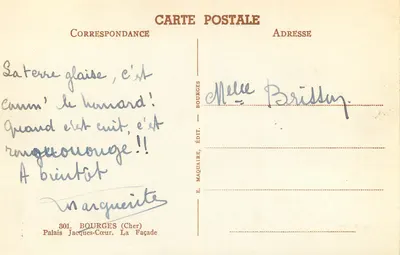 CARTE POSTALE
CORRESPONDANCE
ADRESSE
La terre glaise, c'est
comm' le homard!
Quand c'est cuit, c'est
rouquouououge!!
A bientôt
Marguerite
Melle Brisson
E. MAQUAIRE, ÉDIT. — BOURGES
301. BOURGES (Cher)
Palais Jacques-Cœur. La Façade